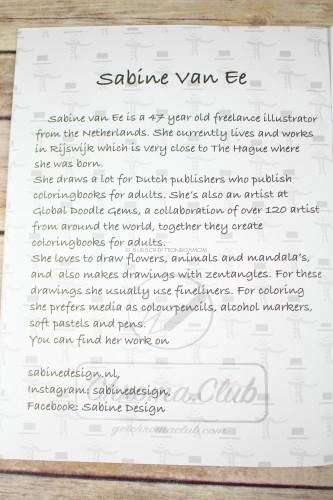 Sabine Van Ee
Sabine van Ee is a 47 year old freelance illustrator
from the Netherlands. She currently lives and works
in Rijswijk which is very close to The Hague where
she was born.
She draws a lot for Dutch publishers who publish
coloringbooks for adults. She's also an artist at
Global Doodle Gems, a collaboration of over 120 artist
from around the world, together they create
coloringbooks for adults.
© SUBSCRIPTIONBOXMOM
She loves to draw flowers, animals and mandala's,
and also makes drawings with zentangles. For these
drawings she usually use fineliners. For coloring
she prefers media as colourpencils, alcohol markers,
soft pastels and pens.
You can find her work on
sabinedesign.nl,
Instagram: sabinedesign,
Facebook: Sabine Design
Chroma.Club
getchromaclub.com